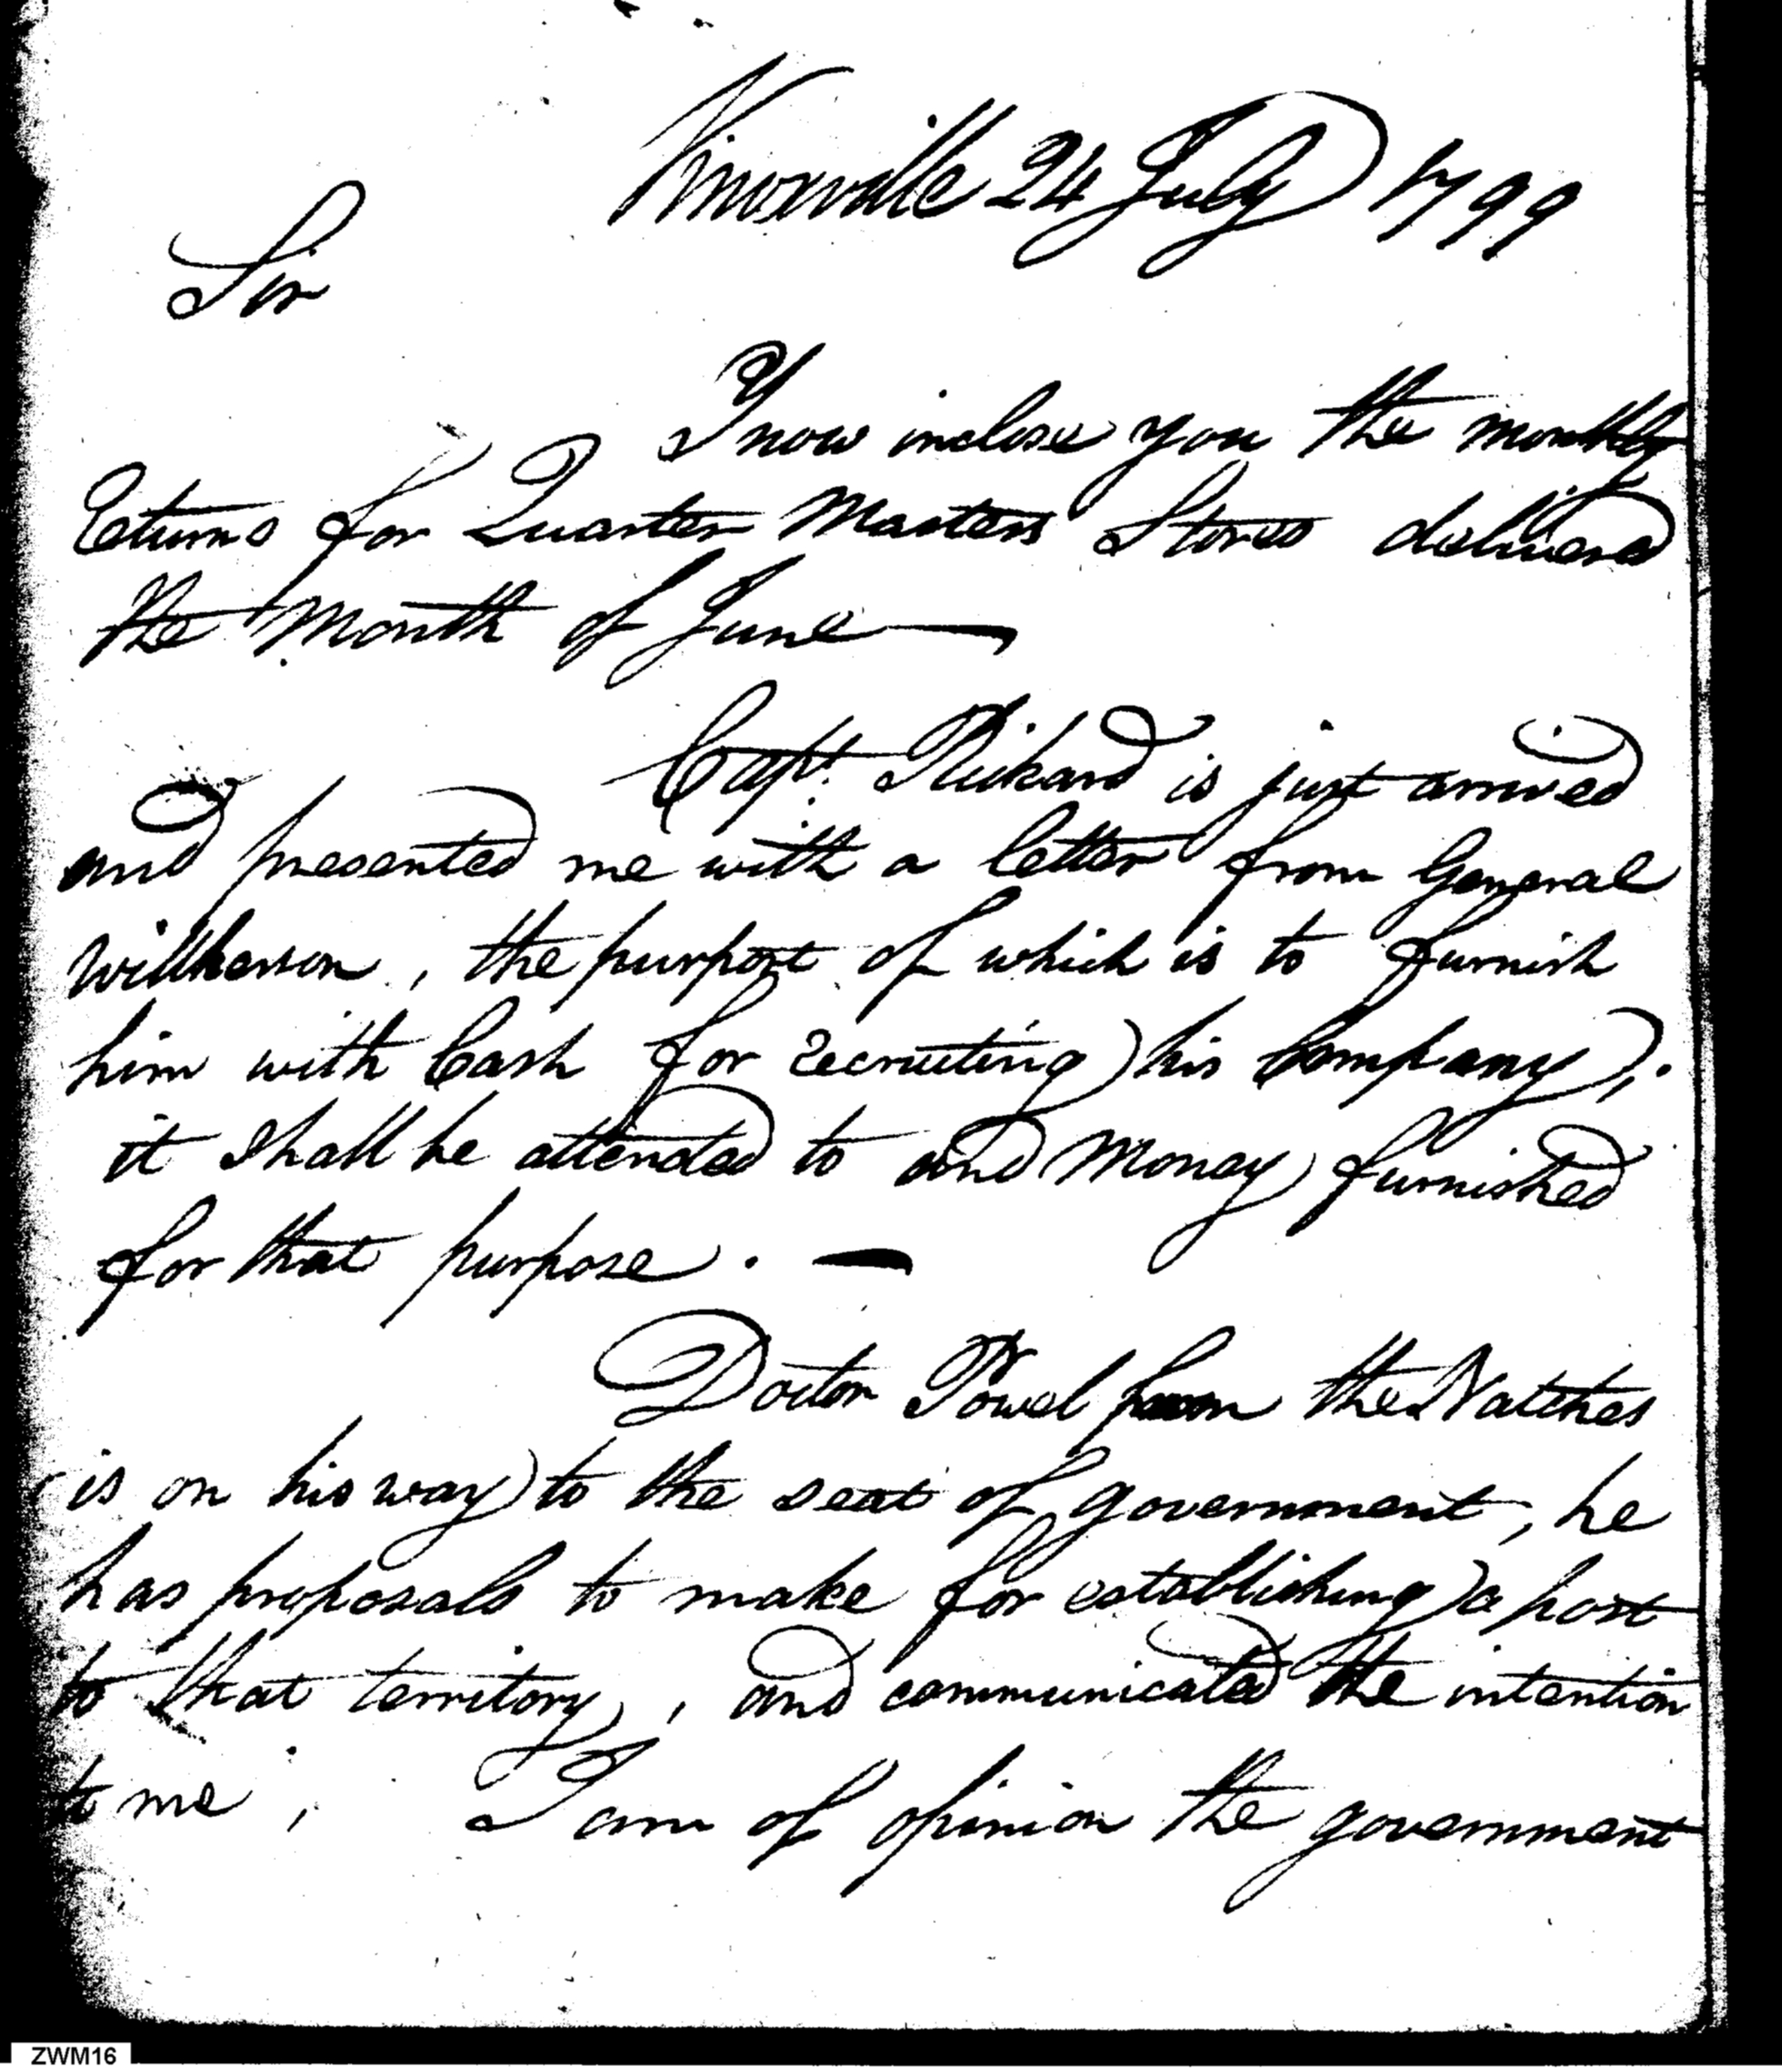 Knoxville 24 July 1799
Sir
I now inclose you the monthly
returns for Quarter Masters Stores delivered
the Month of June —
Capt. Rickard is just arrived
and presented me with a letter from General
Willkerson, the purport of which is to furnish
him with Cash for recruiting his Company;
it Shall be attended to and Money furnished
for that purpose. —
Doctor Powel from the Natches
is on his way to the seat of government, he
has proposals to make for establishing a post
to that territory, and communicated the intention
to me; I am of opinion the government
ZWM16